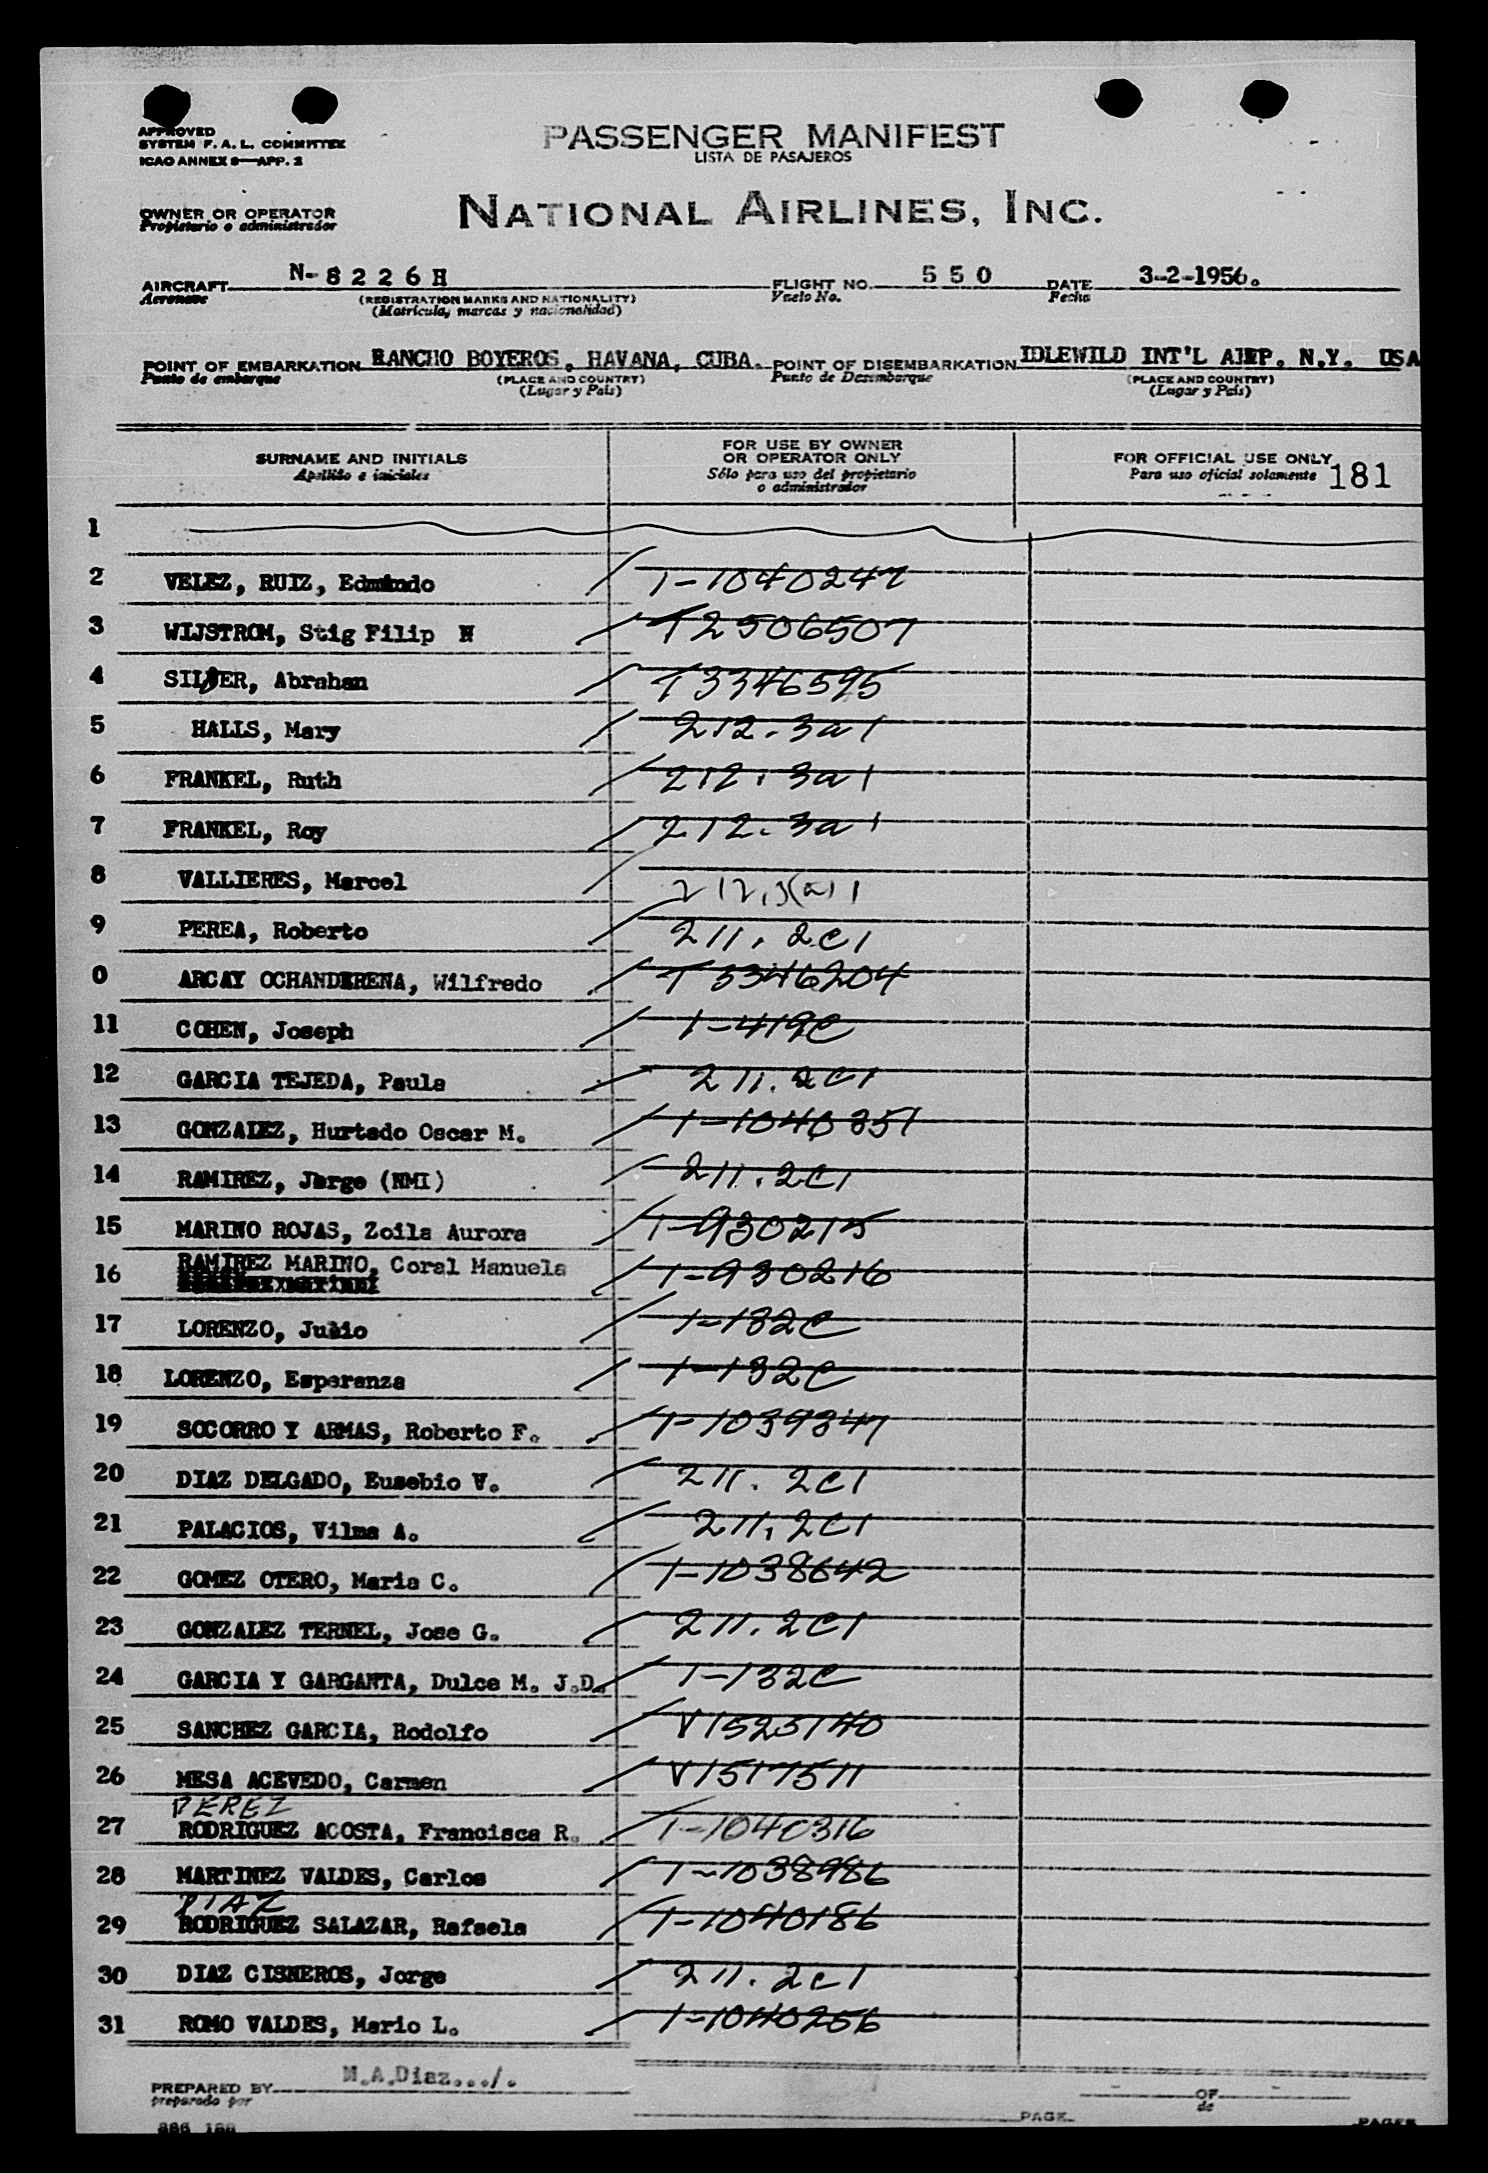 APPROVED
SYSTEM F. A. L. COMMITTEE
ICAO ANNEX 9—APP. 2
PASSENGER MANIFEST
LISTA DE PASAJEROS
OWNER OR OPERATOR
Propietario o administrador
NATIONAL AIRLINES, INC.
AIRCRAFT N- 8 2 2 6 H FLIGHT NO. 5 5 0 DATE 3-2-1956.
Aeronave (REGISTRATION MARKS AND NATIONALITY) Vuelo No. Fecha
(Matrícula, marcas y nacionalidad)
POINT OF EMBARKATION RANCHO BOYEROS, HAVANA, CUBA. POINT OF DISEMBARKATION IDLEWILD INT'L AIRP. N.Y. USA
Punto de embarque (PLACE AND COUNTRY) Punto de Desembarque (PLACE AND COUNTRY)
(Lugar y País) (Lugar y País)
SURNAME AND INITIALS FOR USE BY OWNER OR OPERATOR ONLY FOR OFFICIAL USE ONLY
Apellido e iniciales Sólo para uso del propietario o administrador Para uso oficial solamente 181
1
2 VELEZ, RUIZ, Edmundo 1-1040247
3 WIJSTROM, Stig Filip N T2506507
4 SILVER, Abrahan T3346595
5 HALLS, Mary 212.3a1
6 FRANKEL, Ruth 212.3a1
7 FRANKEL, Roy 212.3a1
8 VALLIERES, Marcel 212.3(a)1
9 PEREA, Roberto 211.2C1
0 ARCAY OCHANDERENA, Wilfredo T 3346204
11 COHEN, Joseph 1-419C
12 GARCIA TEJEDA, Paula 211.2C1
13 GONZALEZ, Hurtado Oscar M. 1-1040351
14 RAMIREZ, Jorge (NMI) 211.2C1
15 MARINO ROJAS, Zoila Aurora 1-930215
16 RAMIREZ MARINO, Coral Manuela 1-930216
17 LORENZO, Julio 1-132C
18 LORENZO, Esperanza 1-132C
19 SOCORRO Y ARMAS, Roberto F. 1-1039347
20 DIAZ DELGADO, Eusebio V. 211.2C1
21 PALACIOS, Vilma A. 211.2C1
22 GOMEZ OTERO, Maria C. 1-1038642
23 GONZALEZ TERNEL, Jose G. 211.2C1
24 GARCIA Y GARGANTA, Dulce M. J.D. 1-132C
25 SANCHEZ GARCIA, Rodolfo V1525140
26 MESA ACEVEDO, Carmen V1517511
PEREZ
27 RODRIGUEZ ACOSTA, Francisca R. 1-1040316
28 MARTINEZ VALDES, Carlos 1-1038986
DIAZ
29 RODRIGUEZ SALAZAR, Rafaela 1-1040186
30 DIAZ CISNEROS, Jorge 211.2C1
31 ROMO VALDES, Mario L. 1-1040256
PREPARED BY M.A.Diaz.../.
preparado por
PAGE OF PAGES
de